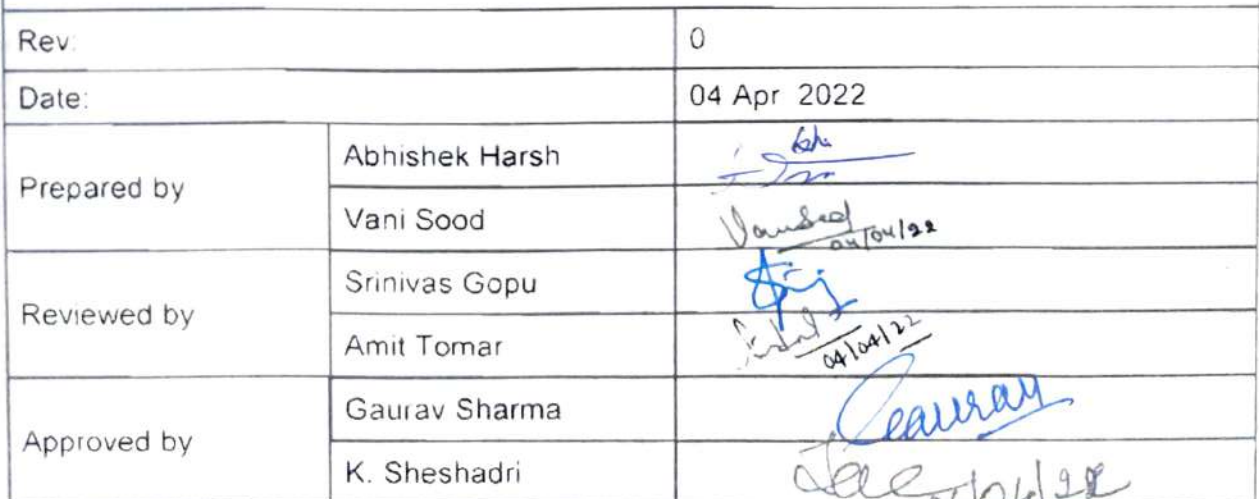 Rev: 0
Date: 04 Apr 2022
Prepared by
Abhishek Harsh
Vani Sood
04/04/22
Reviewed by
Srinivas Gopu
Amit Tomar
04/04/22
Approved by
Gaurav Sharma
Gaurav
K. Sheshadri